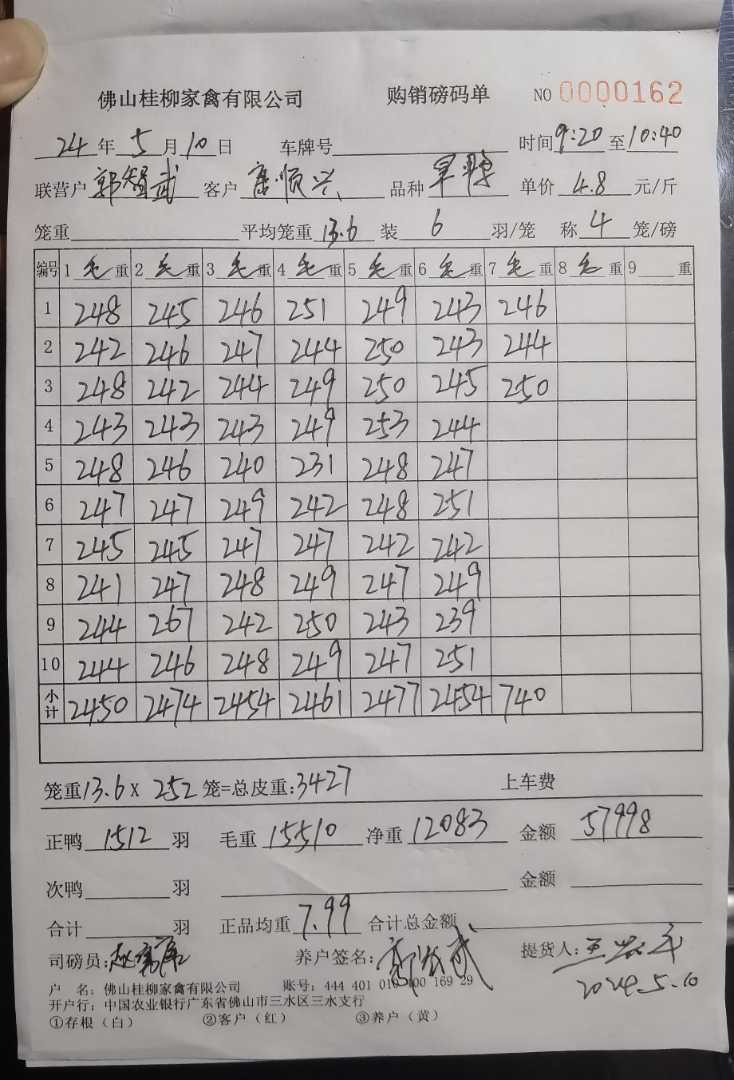 佛山桂柳家禽有限公司 购销磅码单 NO 0000162
24年5月10日 车牌号 时间9:20至10:40
联营户 郭智武 客户 唐顺兴 品种 单价 4.8 元/斤
笼重 平均笼重 13.6 装 6 羽/笼 称 4 笼/磅
编号 1 毛 重 2 毛 重 3 毛 重 4 毛 重 5 毛 重 6 毛 重 7 毛 重 8 毛 重 9 重
1 248 245 246 251 249 243 246
2 242 246 247 244 250 243 244
3 248 242 244 249 250 245 250
4 243 243 243 249 253 244
5 248 246 240 231 248 247
6 247 247 249 242 248 251
7 245 245 247 247 242 242
8 241 247 248 249 247 249
9 244 267 242 250 243 239
10 244 246 248 249 247 251
小计 2450 2474 2454 2461 2477 2454 740
笼重13.6 X 252 笼=总皮重:3427 上车费
正鸭 1512 羽 毛重 15510 净重 12083 金额 57998
次鸭 羽 金额
合计 羽 正品均重 7.99 合计总金额
司磅员: 养户签名: 提货人:
2024.5.10
户 名: 佛山桂柳家禽有限公司 账号: 444 401 010 400 169 29
开户行: 中国农业银行广东省佛山市三水区三水支行
①存根(白) ②客户(红) ③养户(黄)